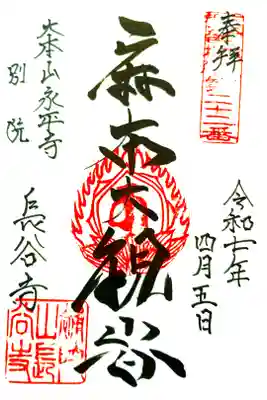 奉拝
令和七年
四月五日
麻布大観音
大本山永平寺
別院
長谷寺